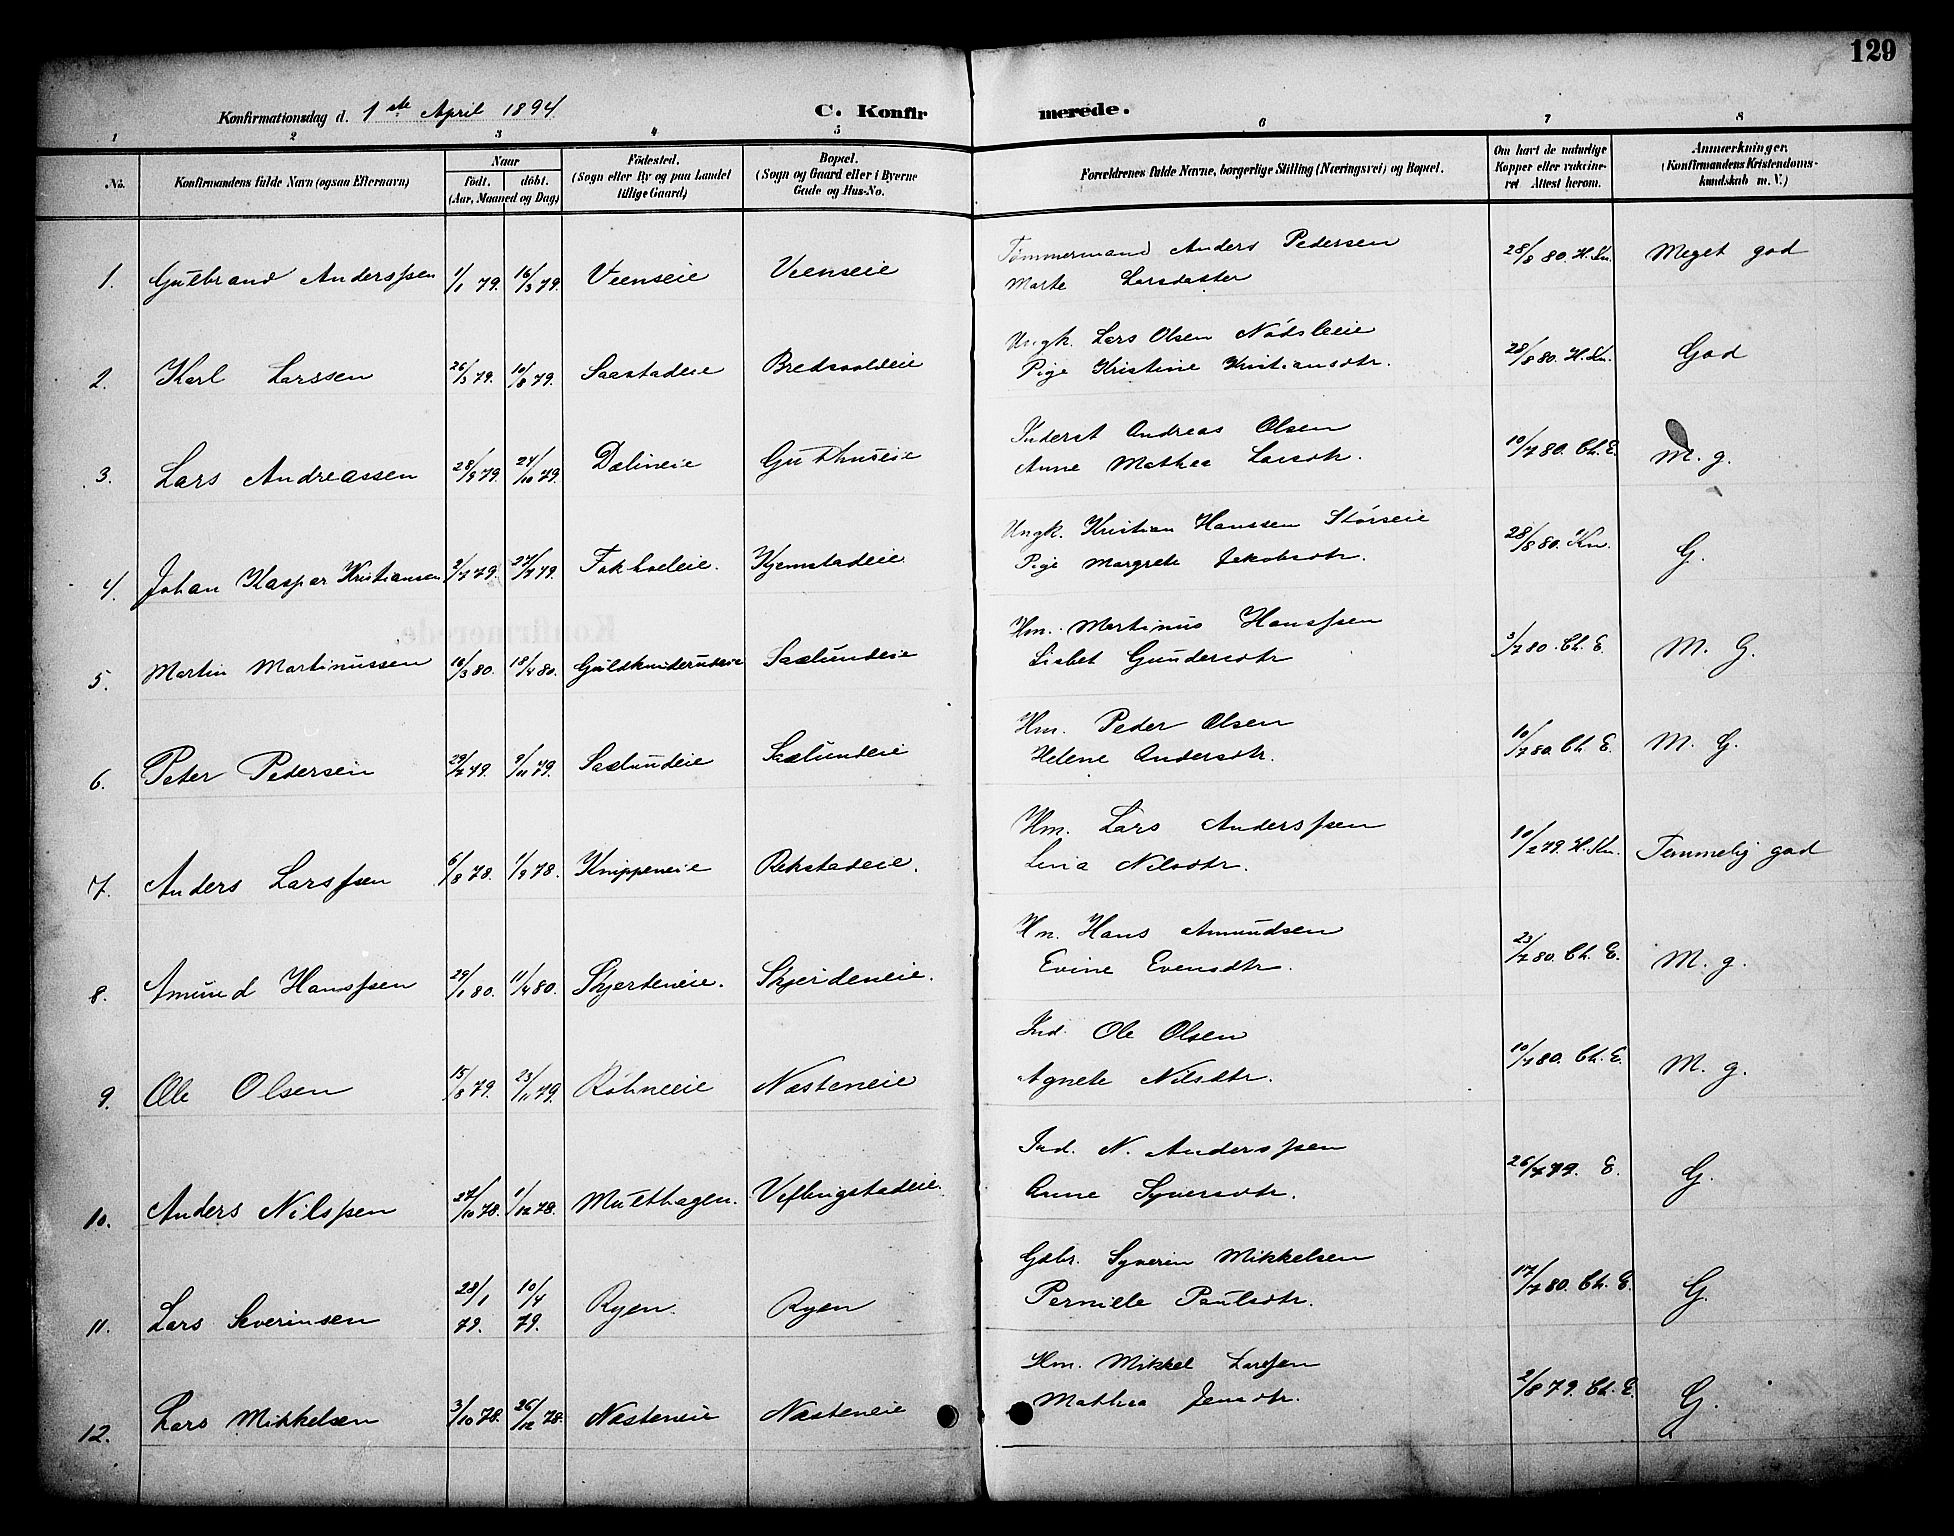 129
Konfirmationsdag d. 1ste April 1894 C. Konfirmerede.
1 2 3 4 5 6 7 8
No. Konfirmandens fulde Navn (ogsaa Efternavn) Naar födt. döbt. (Aar, Maaned og Dag) Födested. (Sogn eller By og paa Landet tillige Gaard) Bopæl. (Sogn og Gaard eller i Byerne Gade og Hus-No. Forældrenes fulde Navne, borgerlige Stilling (Næringsvei) og Bopæl. Om havt de naturlige Kopper eller vakcineret Attest herom. Anmærkninger. (Konfirmandens Kristendomskundskab m. V.)
Tømmermand Anders Pedersen
1. Gulbrand Anderssen 1/1 79. 16/3 79. Veenseie Veenseie Marte Larsdatter 28/8 80. H. Kn. Meget god
Ungk. Lars Olsen Nødsleeie
2. Karl Larssen 26/3 79. 10/8 79. Saastadeie Bredvoldeie Pige Kristine Kristiansdtr. 28/8 80. H. Kn. God
Inderst Andreas Olsen
3. Lars Andreassen 28/8 79. 24/10 79. Dælineie Guthuseie Anne Mathea Larsdtr. 10/7 80. Ch. E. M. g.
Ungk. Kristian Hanssen Størseie
4. Johan Kaspar Kristiansen 2/7 79. 27/7 79. Fokholeie. Kjemstadeie Pige Margrete Jakobsdtr. 28/8 80. Kn. G.
Hm. Martinus Hanssen
5. Martin Martinussen 16/3 80. 18/4 80. Guldknuderudeie Saxlundeie Lisbet Gundersdtr 3/7 80. Ch. E. M. G.
Hm. Peder Olsen
6. Peter Pedersen 29/7 79. 9/11 79. Saxlundeie Saxlundeie Helene Andersdtr. 10/7 80. Ch. E. M. G.
Hm. Lars Anderssen
7. Anders Larssen 6/8 78. 1/9 78. Knippeneie Rekstadeie. Lina Nilsdtr. 10/2 79. H. Kn. Temmelig god
Hm. Hans Amundsen
8. Amund Hanssen 29/1 80. 11/4 80. Skjerdeneie. Skjerdeneie. Evine Evensdtr. 23/7 80. Ch. E. M. g.
Ind. Ole Olsen
9. Ole Olsen 15/8 79. 23/11 79. Røhneeie Næsteneie Agnete Nilsdtr. 10/7 80. Ch. E. M. g.
Ind. N. Anderssen
10. Anders Nilssen 27/10 78. 1/12 78. Multhagen. Veflingstadeie. Anne Syversdtr. 26/7 79. E. G.
Gdbr. Syverin Mikkelsen
11. Lars Severinsen 28/1 79. 10/4 79. Ryen. Ryen Pernille Paulsdtr. 17/7 80. Ch. E. G.
Hm. Mikkel Larssen
12. Lars Mikkelsen 3/10 78. 26/12 78. Næsteneie Næsteneie Mathea Jensdtr. 2/8 79. Ch. E. G.